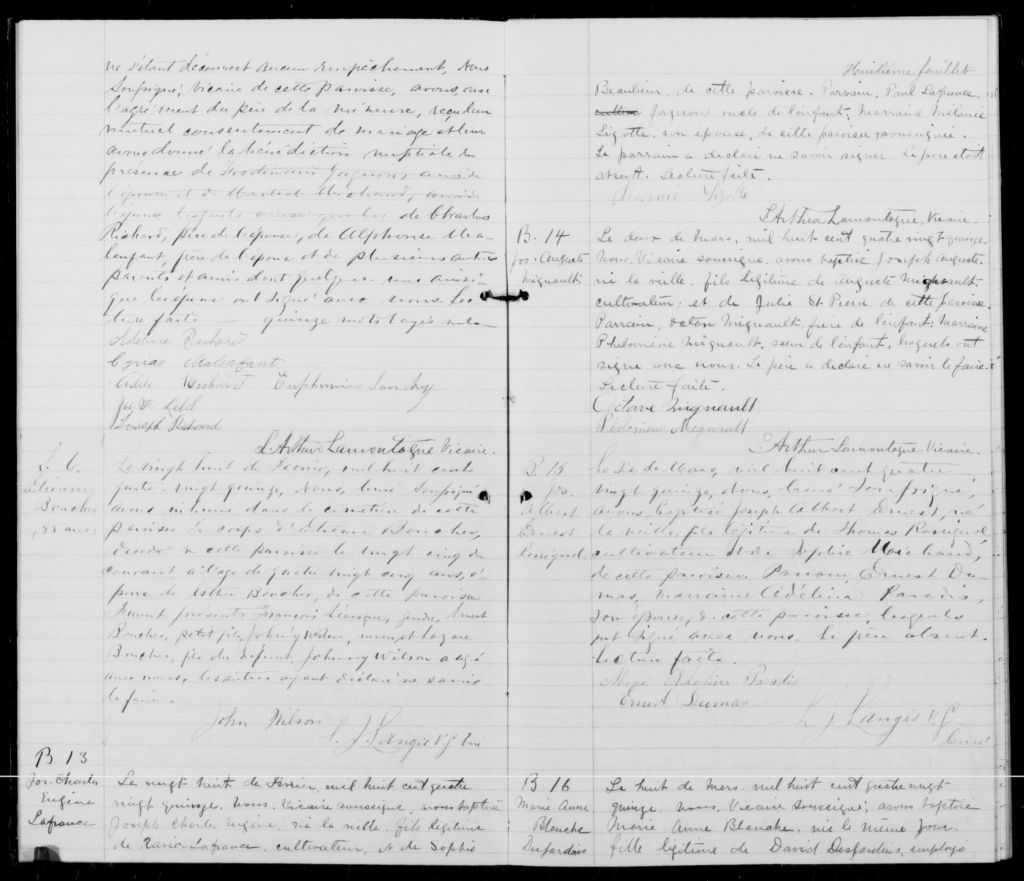 ne s'étant découvert aucun empêchement, Nous
Soussigné, Vicaire de cette paroisse, avons, avec
l'agrément du père de la mineure, recu leur
mutuel consentement de mariage et leur
avons donné la bénédiction nuptiale en
présence de Gagnon, ami de
l'épouse et de
de Charles
Richard, père de l'épouse, de Alphonse Ma-
lenfant, frère de l'époux et de plusieurs autres
parents et amis dont quelques uns ainsi
que les époux ont signé avec nous. Lec-
ture faite. quinze mots rayés nuls
Adelina Richard
Cyrias Malenfant
Adèle Richard Euphemie
Jos
Joseph Richard
L. Arthur Lamontagne Vicaire.
S. 6.
Etienne
Boucher
85 ans.
Le vingt huit de Fevrier, mil huit cent
quatre-vingt quinze, Nous, Curé soussigné
avons inhumé dans le cimetière de cette
paroisse le corps d'Etienne Boucher,
décédé en cette paroisse le vingt cinq du
courant à l'âge de quatre vingt cinq ans, é-
poux de Esther Boucher, de cette paroisse
Furent présents François Lévesque, gendre, Ernest
Boucher, petit fils, Johnny Wilson, neveu et Lazare
Boucher, fils du défunt, Johnny Wilson a signé
avec nous, les autres ayant déclaré ne savoir
le faire.
John Wilson
L. J. Langis V. G. Curé
B 13
Jos. Charles
Eugène
Lafrance
Le vingt huit de Fevrier, mil huit cent quatre
vingt quinze. Nous, Vicaire soussigné, avons baptisé
Joseph Charles Eugène, né la veille, fils légitime
de Lafrance, cultivateur, et de Sophie
Huitième feuillet
Beaulieu, de cette paroisse. Parrain, Paul Lafrance,
forgeron, oncle de l'enfant; Marraine Mélanie
Lizotte, son épouse, de cette paroisse soussignée.
Le parrain a declaré ne savoir signer. Le père était
absent. Lecture faite.
Mélanie Lizotte
L. Arthur Lamontagne, Vicaire.
B. 14
Jos. Auguste
Mignault
Le deux de Mars, mil huit cent quatre vingt quinze,
Nous, Vicaire soussigné, avons baptisé Joseph Auguste,
né la veille, fils légitime de Auguste Mignault,
cultivateur, et de Julie St Pierre, de cette paroisse
Parrain, Octave Mignault, frère de l'enfant; Marraine
Philomène Mignault, soeur de l'enfant, lesquels ont
signé avec nous. Le père a declaré ne savoir le faire.
Lecture faite.
Octave Mignault
Philomène Mignault
L. Arthur Lamontagne Vicaire.
B 15
Jos.
Albert
Ernest
Rossignol
Le six de Mars, mil huit cent quatre
vingt quinze, Nous, Curé soussigné,
avons baptisé Joseph Albert Ernest, né
la veille, fils légitime de Thomas Rossignol
cultivateur et de Sophie Marchand,
de cette paroisse. Parrain, Ernest Du-
mas, marraine Adelina Paradis,
son épouse, de cette paroisse, lesquels
ont signé avec nous. Le père absent.
Lecture faite.
Adelina Paradis
Ernest Dumas
L. J. Langis V. G.
Curé
B 16
Marie Anne
Blanche
Desjardins
Le huit de Mars, mil huit cent quatre vingt
quinze, nous, Vicaire soussigné, avons baptisé
Marie Anne Blanche, née le même jour,
fille légitime de David Desjardins, employé